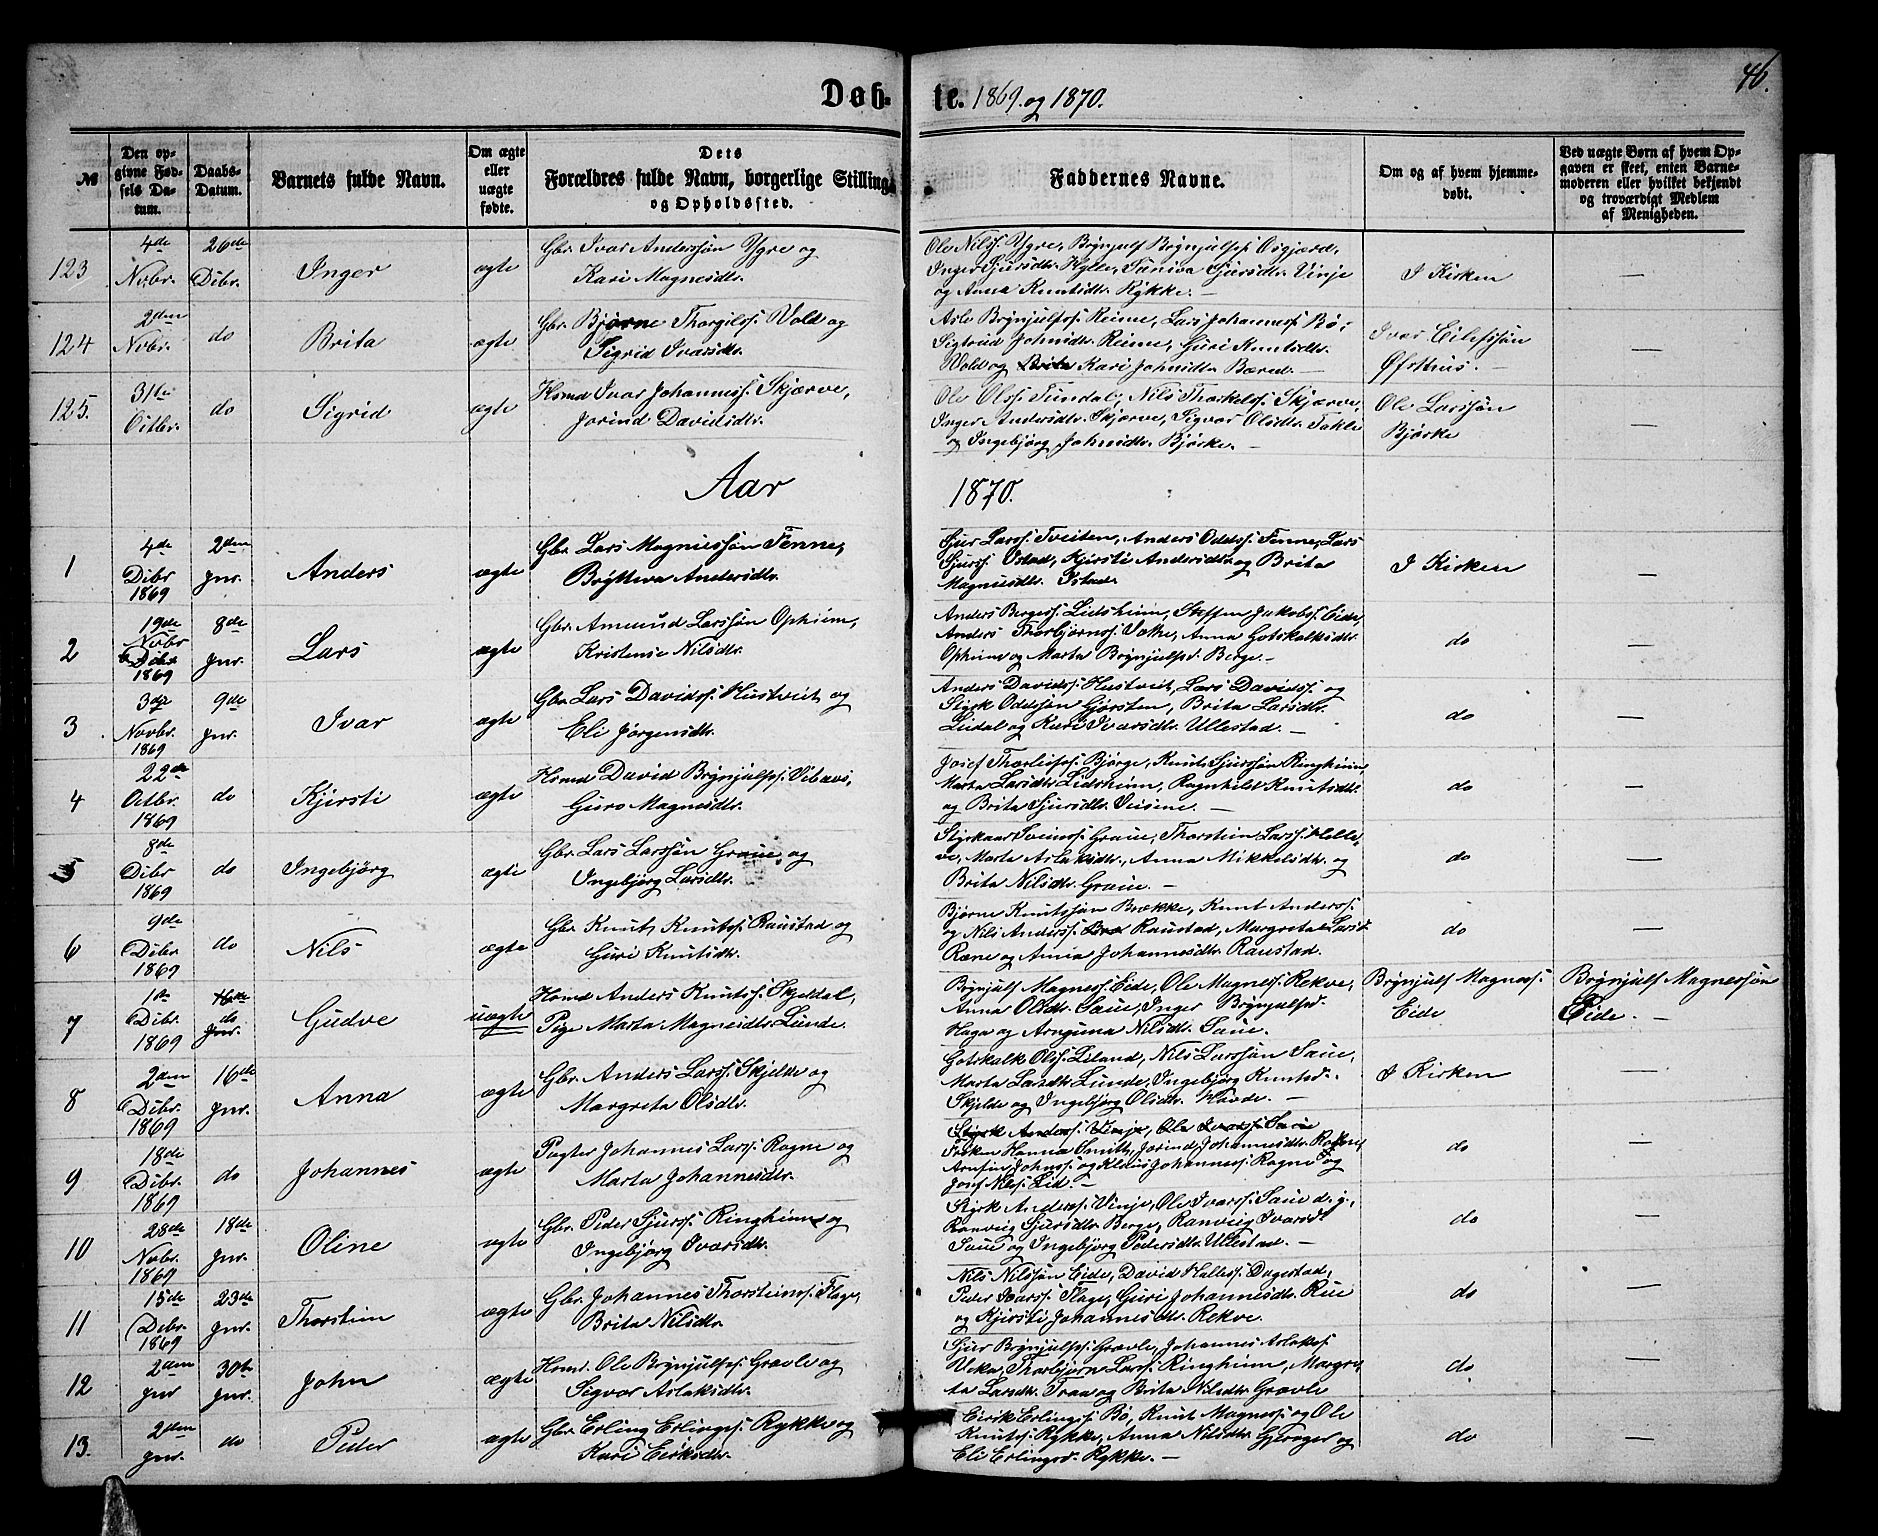 46.
Døbte. 1869. og 1870.
№
Den opgivne Fødsels Datum.
Daabs-Datum.
Barnets fulde Navn.
Om ægte eller uægte fødte.
Dets Forældres fulde Navn, borgerlige Stilling og Opholdssted.
Faddernes Navne.
Om og af hvem hjemmedøbt.
Ved uægte Børn af hvem Opgaven er skeet, enten Barnemoderen eller hvilket bekjendt og troværdigt Medlem af Menigheden.
123
4de Novbr.
26de Dibr.
Inger
ægte
Gbr. Ivar Anderssøn Ygre og
Kari Magnesdtr.
Ole Nilss. Ygre, Brynjulf Brynjulfss. Opgjærd,
Inger Sjursdtr. Hylle, Suniva Sjursdtr. Vinje
og Anna Knutsdtr. Rykke. —
I Kirken
—
124
2den Novbr.
do
Brita
ægte
Gbr. Bjørne Thorgilss. Vold og
Sigrid Ivarsdtr.
Asle Brynjulfss. Reime, Lars Johanness. Bø,
Sigtrud Johnsdtr. Reime, Guri Knutsdtr.
Vold og Brita Kari Johnsdtr. Bæred. —
Ivar Eilifssøn
Østhus. —
—
125.
31te Octbr.
do
Sigrid
ægte
Hsmd Ivar Johanness. Skjærve,
Jorind Davidsdtr.
Ole Olss. Tundal, Nils Thorkelss. Skjærve,
Inger Andersdtr. Skjærve, Sigvor Olsdtr. Takle
og Ingebjørg Johnsdtr. Bjørke. —
Ole Larssøn
Bjørke
Aar 1870.
1
4de Dibr 1869
2den Jnr.
Anders
ægte
Gbr. Lars Magnussøn Fenne,
Brytteva Andersdtr.
Sjur Larss. Tveiten, Anders Oddss. Fenne, Lars
Sjurss. Istad, Kjersti Andersdtr. og Brita
Magnusdtr. Istad.
I Kirken
—
2
19de Novbr Dibr 1869
8de Jnr.
Lars
ægte
Gbr. Amund Larssøn Opheim,
Kristense Nilsdtr.
Anders Bergess. Lidsheim, Steffen Jakobss. Eide,
Anders Thorbjørnss. , Anna Gotskalksdtr.
Opheim og Marta Brynjulfsd. Berge. —
do
—
3
3die Novbr. 1869
9de Jnr.
Ivar
ægte
Gbr. Lars Davidss. Hustveit og
Eli Jørgensdtr.
Anders Davidss. Hustveit, Lars Davidss. og
Styrk Oddssøn Gjersten, Brita Larsdtr.
Lirdal og Kari Ivarsdtr. Ullestad. —
do
—
4
22de Octbr. 1869
do
Kjersti
ægte
Hsmd David Brynjulfss. ,
Guro Magnesdtr.
Josef Thorleifss. Bjørge, Knut Sjurssøn Ringheim,
Marta Larsdtr. Lidsheim, Ragnhild Knutsdtr.
og Brita Sjursdtr. . —
do
—
5
8de Dibr 1869
do
Ingebjørg
ægte
Gbr. Lars Larssøn Graue, og
Ingebjørg Larsdtr.
Styrkaar Sveinss. Graue, Thorstein Larss. Helle-
ve, Marta Aslaksdtr., Anna Mikkelsdtr. og
Brita Nilsdtr. Graue. —
do
—
6
9de Dibr. 1869
do
Nils
ægte
Gbr. Knut Knutss. Raustad og
Guri Knutsdtr.
Bjørne Knutssøn Brække, Knut Anderss.
og Nils Anderss. Raustad, Margreta Larsd.
Rene og Anna Johannesdtr. Raustad.
do
—
7
1ste Dibr. 1869
16de do Jnr.
Gudve
uægte
Hsmd Anders Knutss. Skjeldal,
Pige Marta Magnesdtr. Lunde.
Brynjulf Magness. Eide, Ole Magness. Rekve,
Anna Olsdtr. Saue, Inger Brynjulfsd.
Haga og Arnguna Nilsdtr. Saue.
Brynjulf Magness.
Eide
Brynjulf Magnessøn
Eide. —
8
2den Dibr. 1869
16de Jnr.
Anna
ægte
Gbr. Anders Larss. Skjelde og
Margreta Olsdtr.
Gotskalk Olss. Liland, Nils Larssøn Saue,
Marta Larsdtr. Lunde, Ingebjørg Knutsd.
Skjelde og Ingebjørg Olsdtr. Havde. —
I Kirken
—
9
18de Dibr. 1869
do
Johannes
ægte
Pagter Johannes Larss. Rogne og
Marta Johannesdtr.
Styrk Anderss. Vinje, Ole Ivarss. Saue
Frøken Hanna Smitt, Jorind Johannesdtr. Rogne,
Arnfin Johnss. og Klaus Johanness. Rogne og
Josef Nilss. Lid. —
do
—
10
28de Novbr. 1869
18de Jnr.
Oline
ægte
Gbr. Peder Sjurss. Ringheim og
Ingebjørg Ivarsdtr.
Styrk Anderss. Vinje, Ole Ivarss. Saue d. y.,
Ranveig Sjursdtr. Berge, Ranveig Ivarsd.
Saue og Ingebjørg Pedersdtr. Ullestad. —
do
—
11
15de Debr. 1869
23de Jnr.
Thorstein
ægte
Gbr. Johannes Thorsteinss. Flage,
Brita Nilsdtr.
Nils Nilssøn Eide, David Helless. Dagestad,
Peder Ivarss. Flage, Guri Johannesdtr. Rue
og Kjersti Johannesdtr. Rekve.
do
—
12
2den Jnr
30te Jnr.
John
ægte
Hsmd. Ole Brynjulfss. Gravle og
Sigvor Aslaksdtr.
Sjur Brynjulfss. Gravle, Johannes Aslakss.
, Thorbjørn Larss. Ringheim, Margre-
ta Larsdtr. Traa og Brita Nilsdtr. Gravle
do.
—
13.
2den Jnr.
do
Peder
ægte
Gbr. Erling Erlingss. Rykke og
Kari Eiriksdtr.
Eirik Erlingss. Bø, Knut Magness. og Ole
Knutss. Rykke, Anna Nilsdtr. Gjerager og
Eli Erlingsd. Rykke. —
do
—